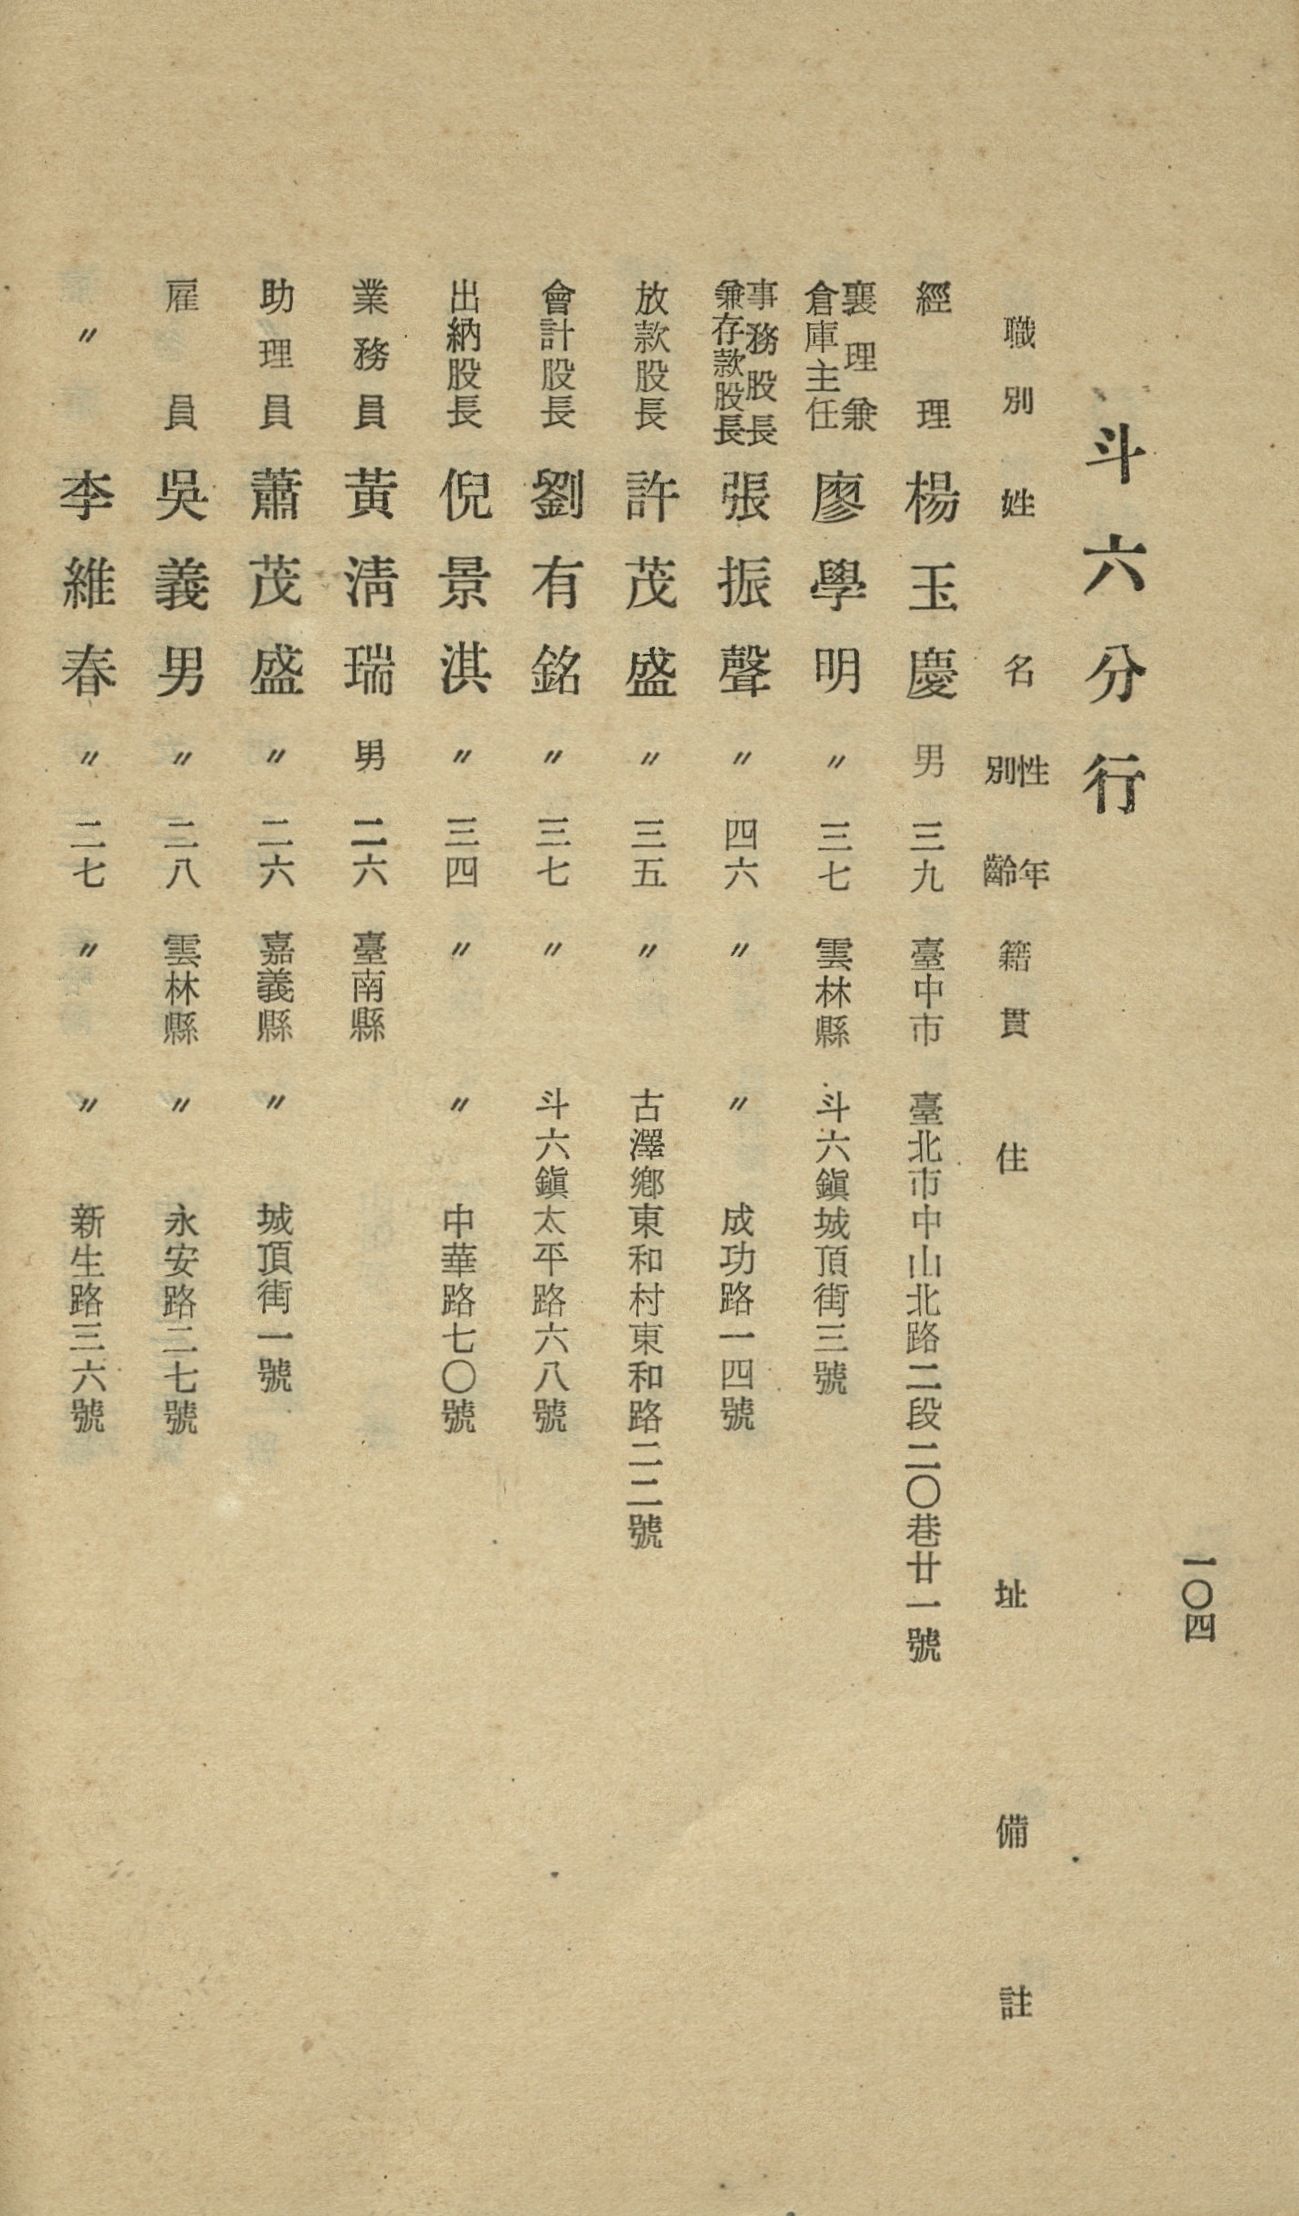 一〇四
斗六分行
職別 姓名 性別 年齡 籍貫 住址 備註
經理 楊玉慶 男 三九 臺中市 臺北市中山北路二段二〇巷廿一號
襄理兼倉庫主任 廖學明 〃 三七 雲林縣 斗六鎭城頂街三號
事務股長兼存款股長 張振聲 〃 四六 〃 〃 成功路一四號
放款股長 許茂盛 〃 三五 〃 古澤鄕東和村東和路二二號
會計股長 劉有銘 〃 三七 〃 斗六鎭太平路六八號
出納股長 倪景淇 〃 三四 〃 〃 中華路七〇號
業務員 黃淸瑞 男 二六 臺南縣
助理員 蕭茂盛 〃 二六 嘉義縣 〃 城頂街一號
雇員 吳義男 〃 二八 雲林縣 〃 永安路二七號
〃 李維春 〃 二七 〃 〃 新生路三六號